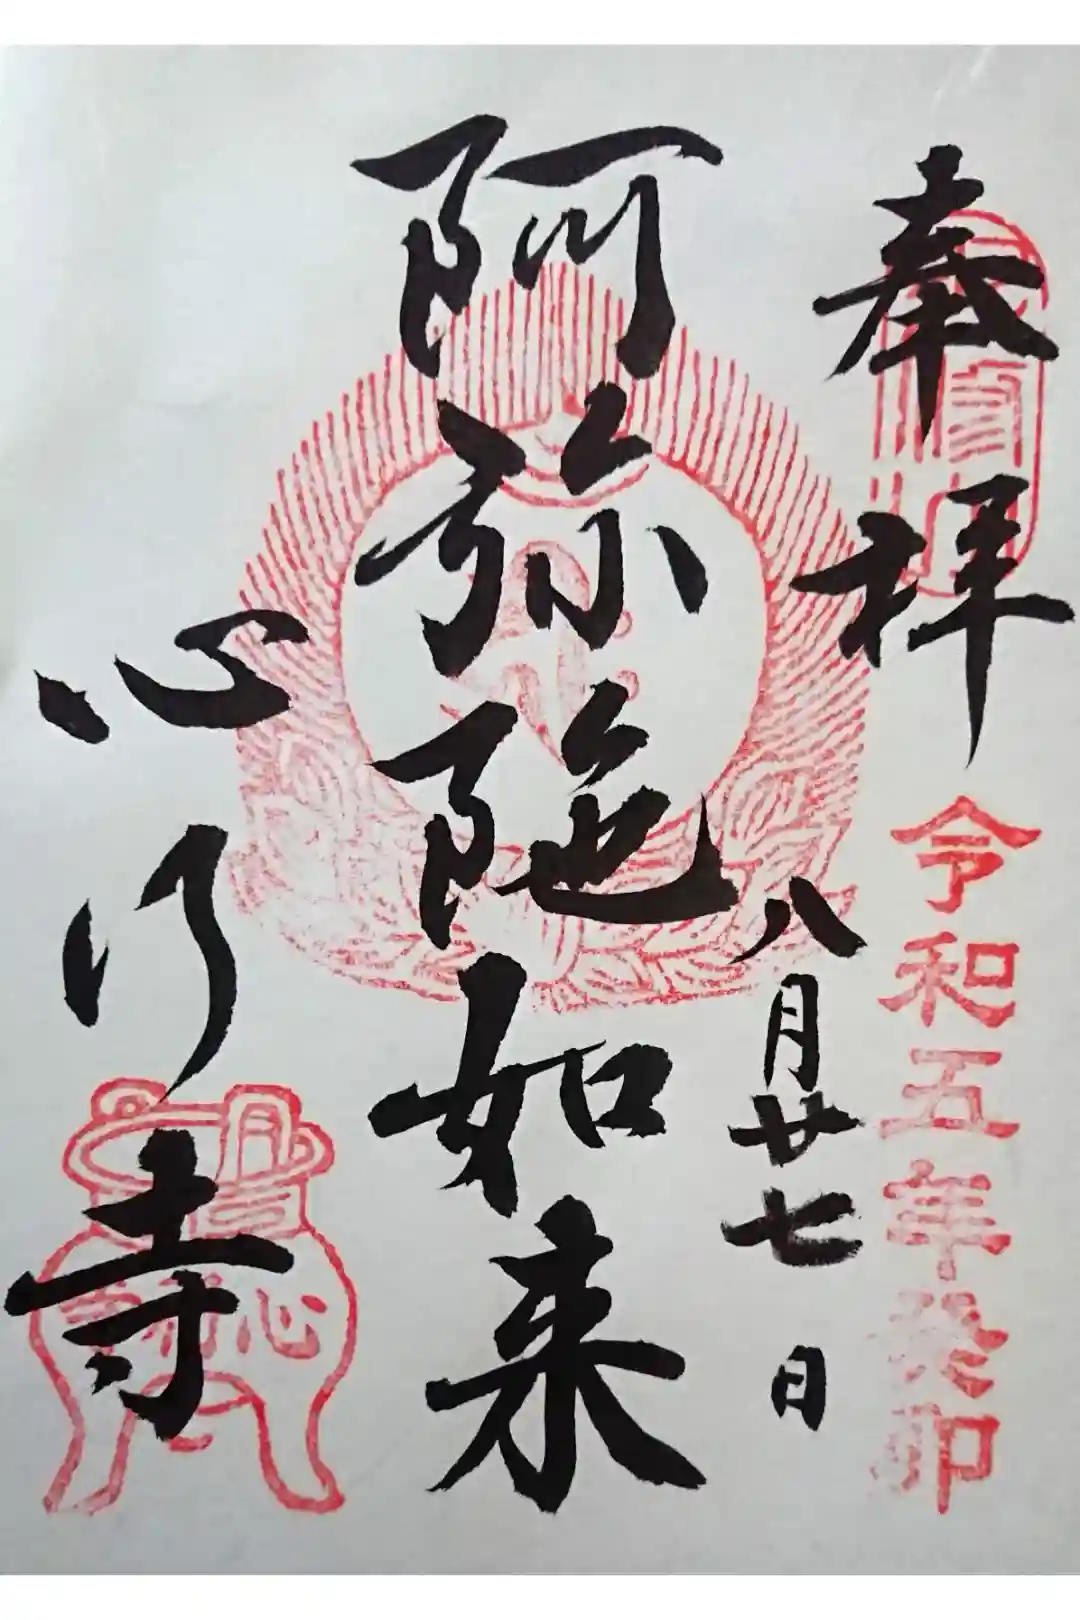 奉拝
令和五年癸卯
八月廿七日
阿弥陀如来
心行寺